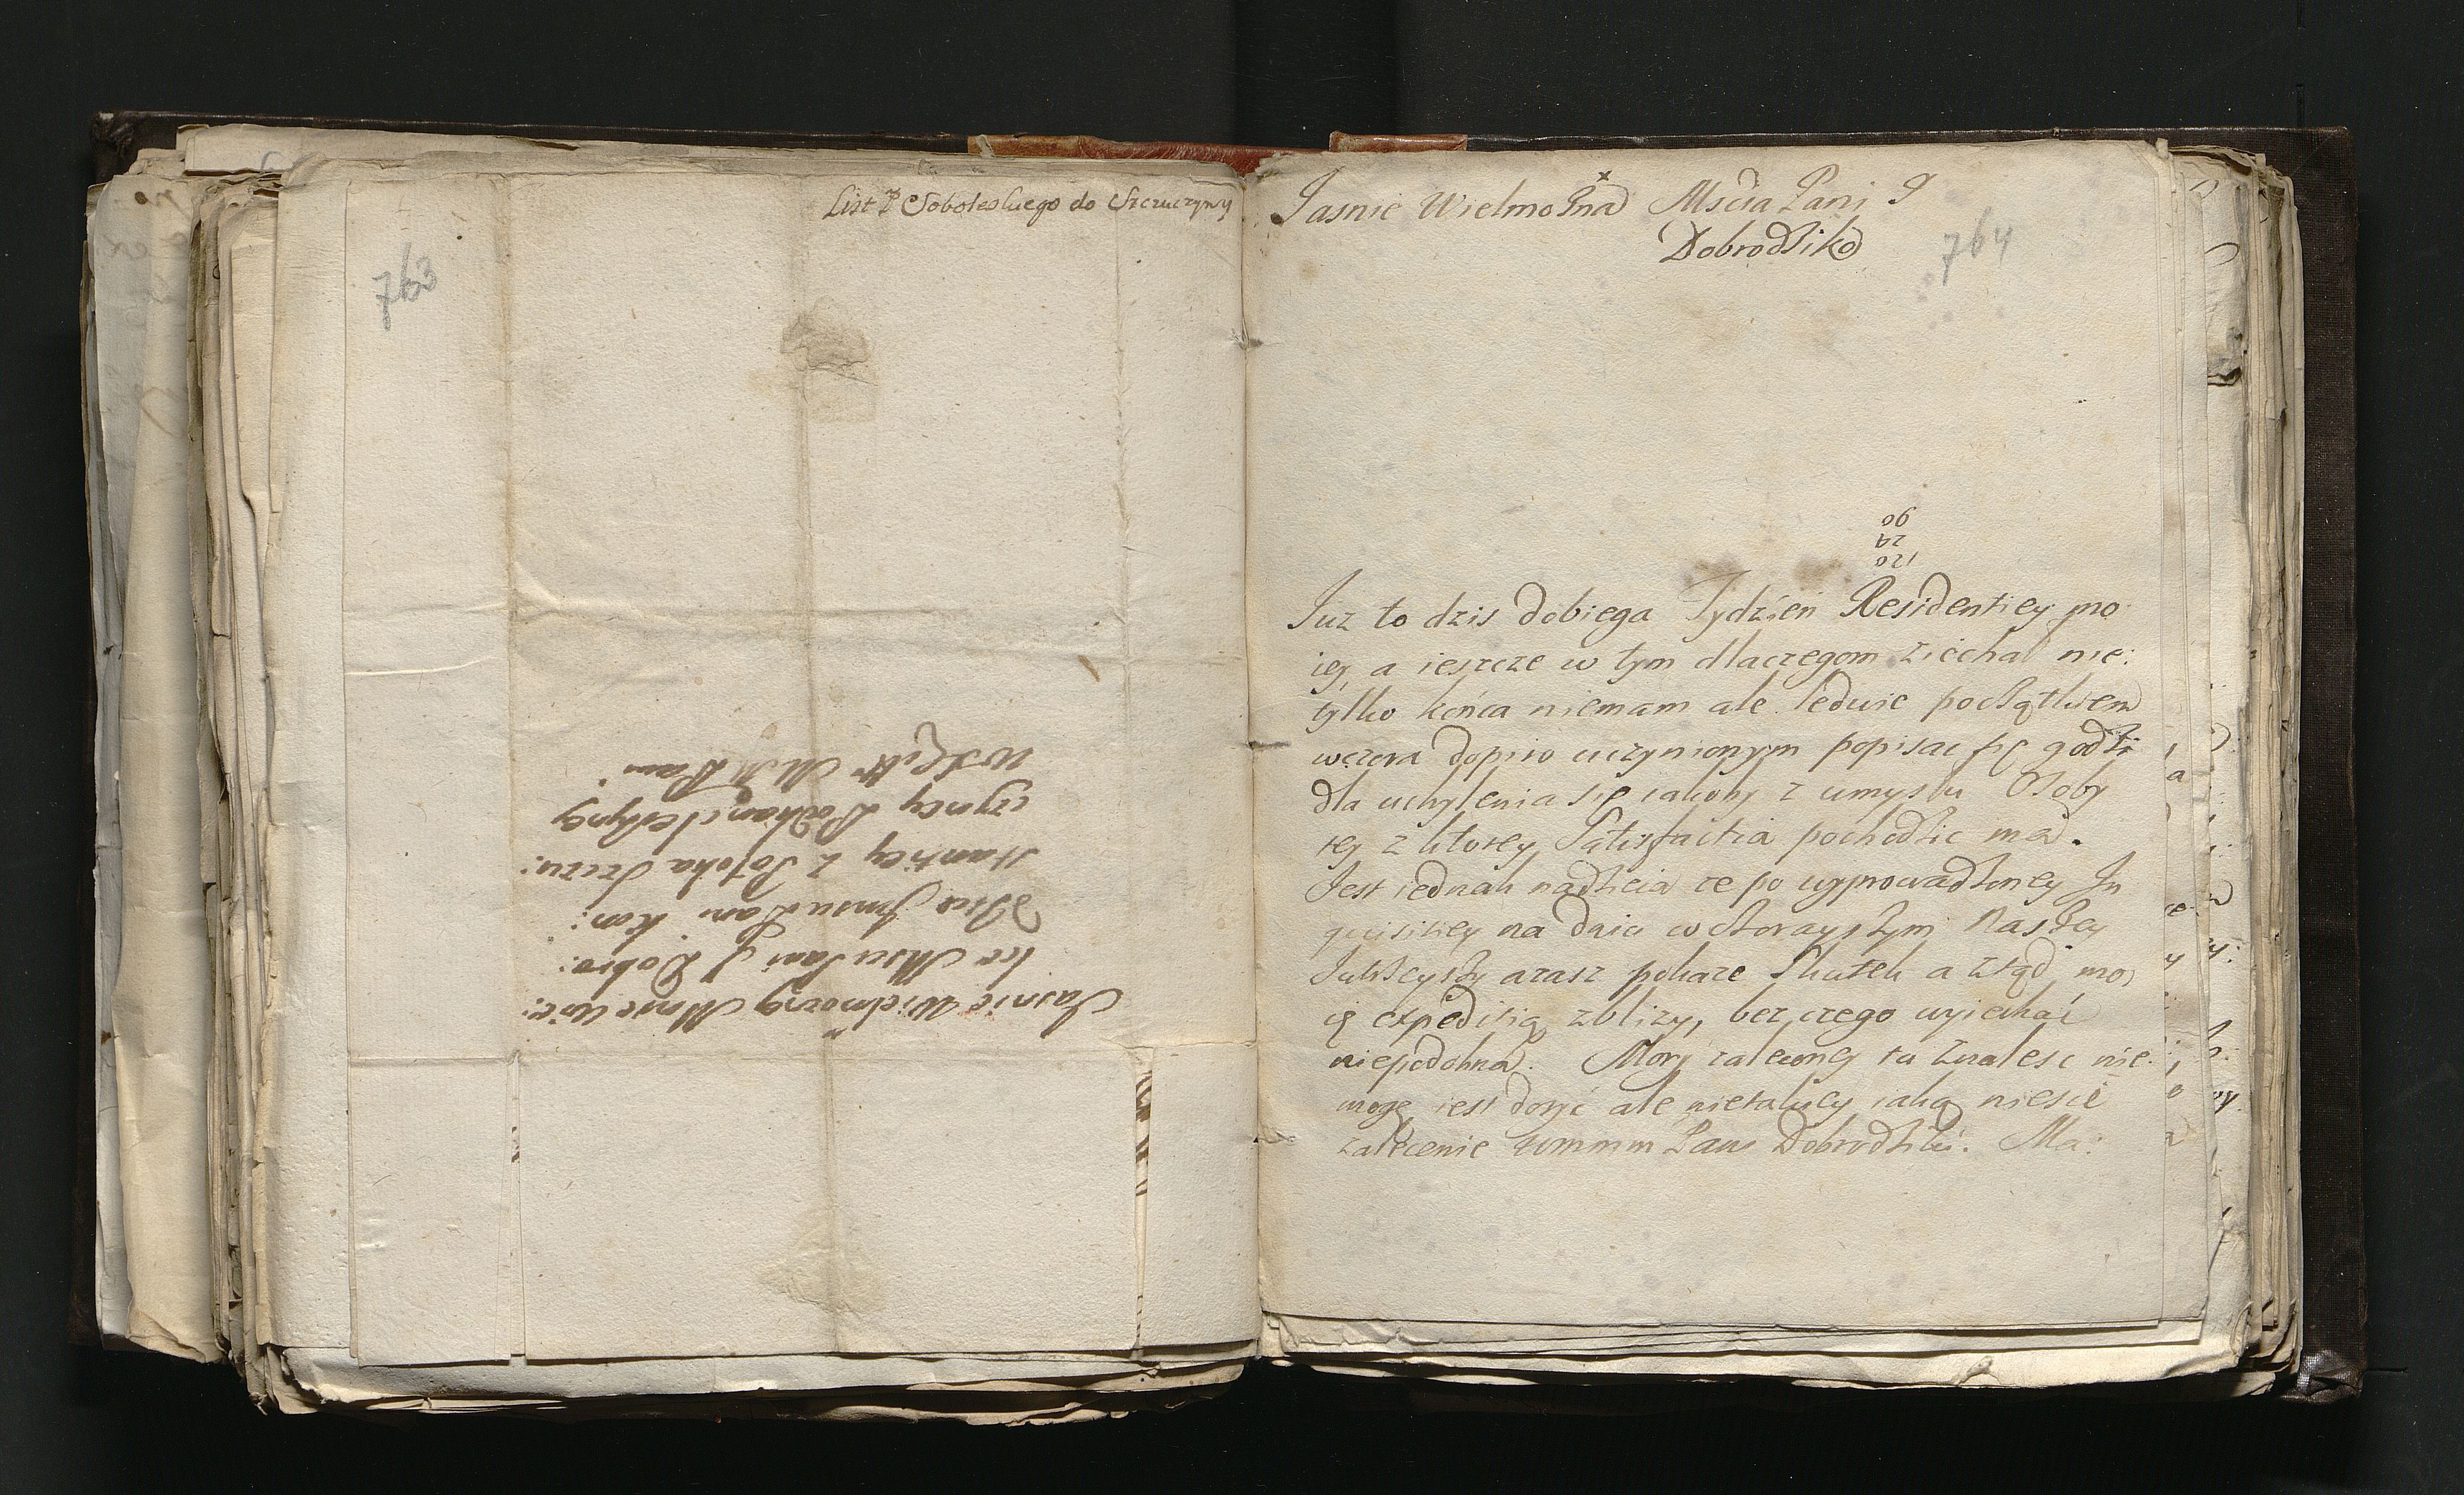 List P Sobolewskiego do Szczuczyny
763
Jasnie Wielmozney Mnie Wie:
lce Mscu Pani J Dobro:
Jmsu Pani Kon:
stantiey z Potoka Szczu:
czyney Podkanclerzyney
WXLitt M M Pani
Jasnie Wielmożna Mscia Pani J
Dobrodzika
764
120
24
90
Juz to dzis dobiega Tydzień Residentiey mo
iey, a ieszcze w tym dlaczegom ziechał nie:
tylko końca niemam ale ledwie początkiem
wczora dopiro uczynionym popisac się godzi
dla uchylenia sie iakoby z umysłu Osoby
tey z ktorey Satisfactia pochodzic ma.
Jest iednak nadzieia ze po wyprowadzoney In
quisitiey na dniu wczorayszym Naszey
arasz pokaze Skutek a ztąd mo
ię expeditią zblizy, bez czego wyiechać
niepodobna. Mory zalecony tu znalesc nie
mogę, iest dosyć ale nietakiey iaką niesie
zalecenie wmmm Pani Dobrodziki. Ma: